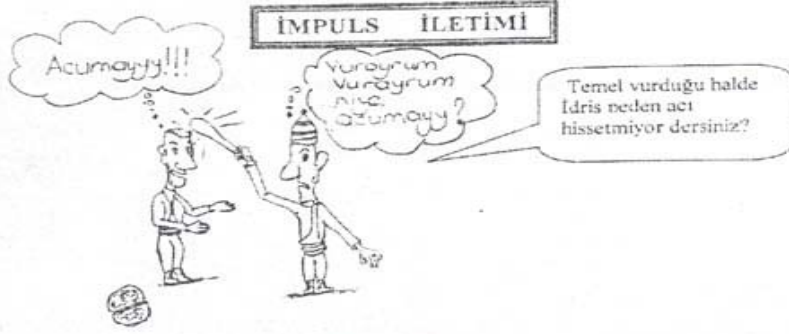 İMPULS İLETİMİ
Acumayyy!!!
Vurayrum
Vurayrum
niye
acumayy?
Temel vurduğu halde
İdris neden acı
hissetmiyor dersiniz?